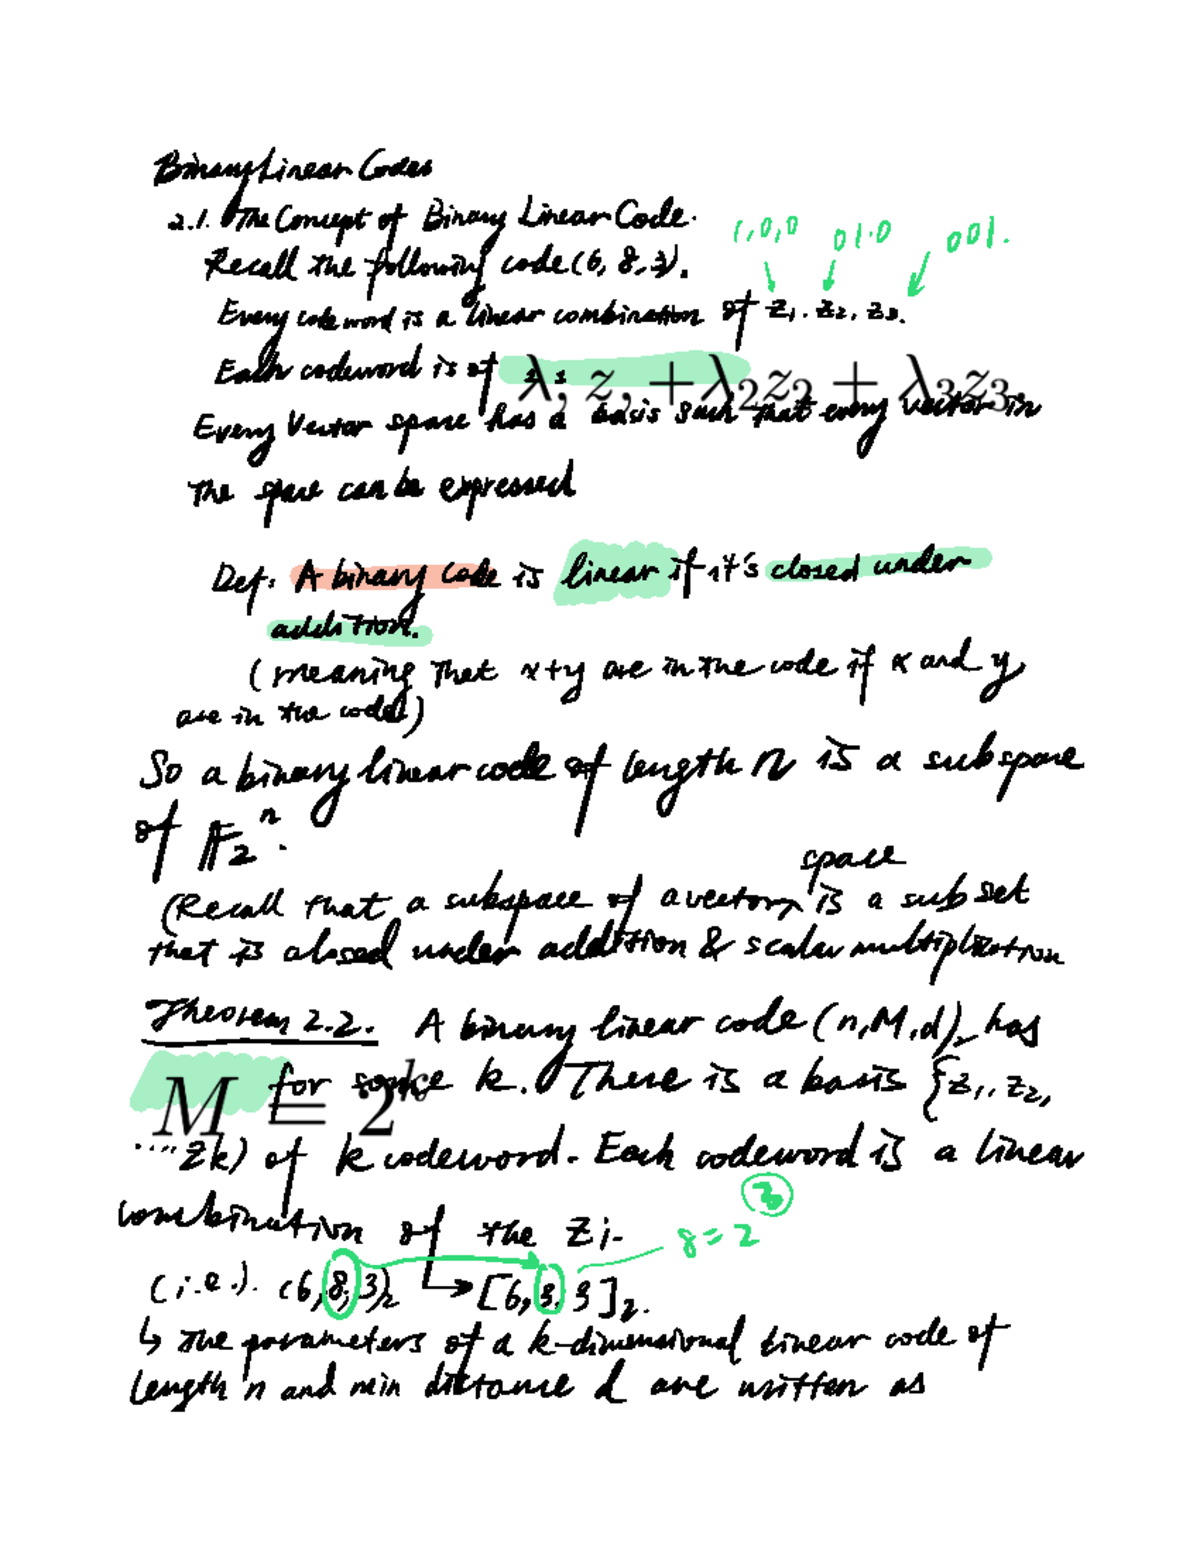 Binary Linear Codes
2.1. The Concept of Binary Linear Code.
1,0,0 01.0 001.
Recall the following code (6, 8, 3).
Every codeword is a linear combination of z1. z2, z3.
Each codeword is of λ, z, +λ2z2 + λ3z3
Every Vector space has a basis such that every vector in
The space can be expressed
Def: A binary code is linear if it's closed under
addition.
(meaning That x+y are in the code if x and y,
are in the code)
So a binary linear code of length n is a subspace
of F2^n.
space
(Recall that a subspace of a vector^ is a subset
that is closed under addition & scalar multiplication
Theorem 2.2. A binary linear code (n,M,d)2 has
M = 2^k for some k. There is a basis {z1. z2,
....zk) of k codeword. Each codeword is a linear
combination of the Zi.
8 = 2^3
(i.e.). (6, 8, 3)2 ↳ [6, 3, 3]2.
↳ The parameters of a k-dimensional linear code of
length n and min distance d are written as